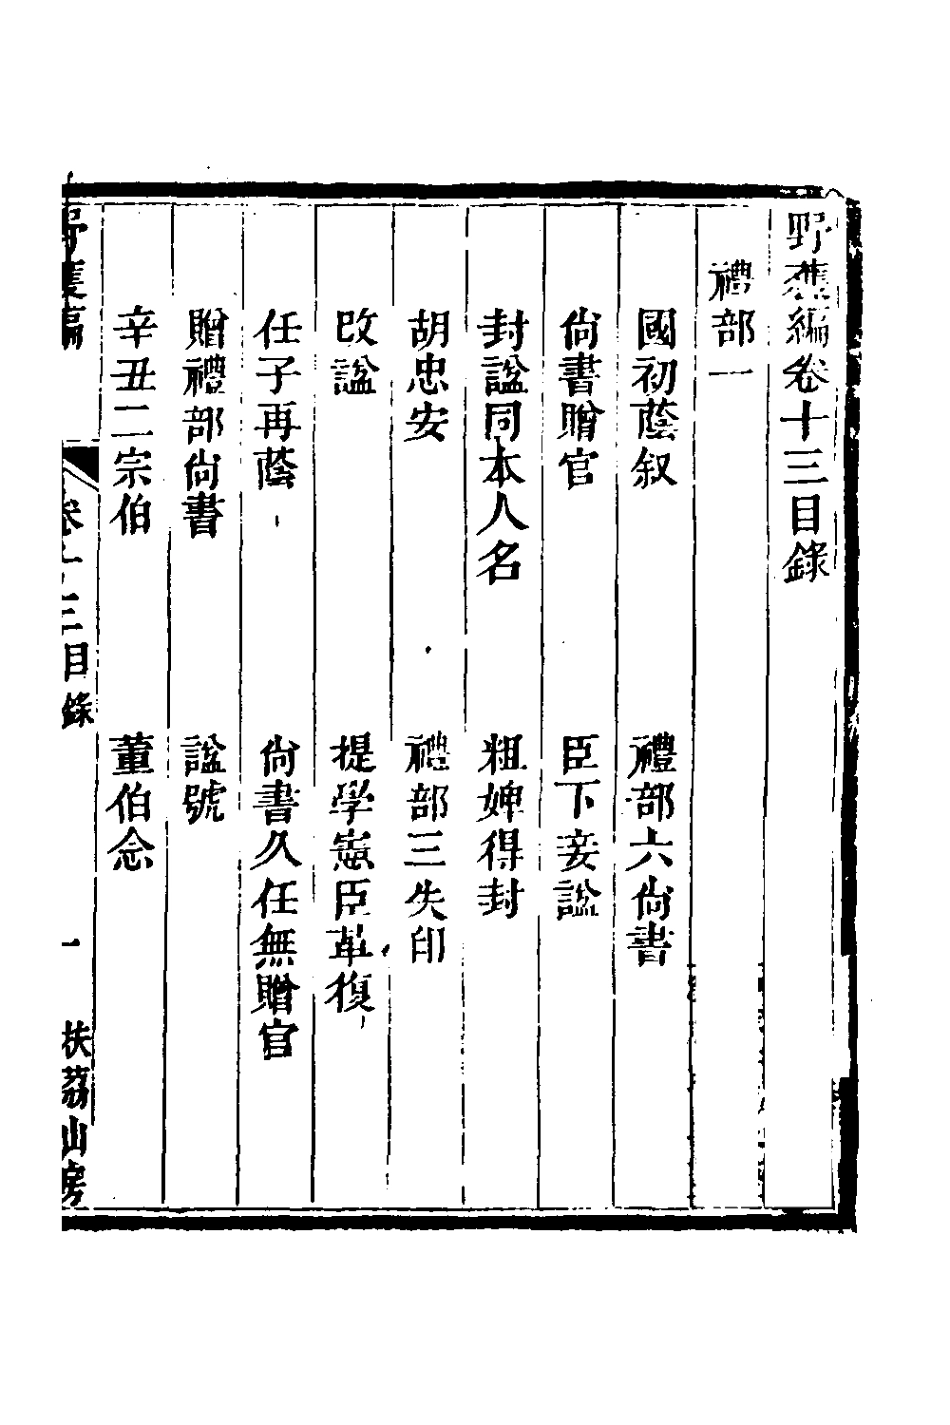 野獲編卷十三目錄
禮部一
國初蔭叙　禮部六尚書
尚書贈官　臣下妾諡
封諡同本人名　粗婢得封
胡忠安　禮部三失印
改諡　提學憲臣革復
任子再蔭　尚書久任無贈官
贈禮部尚書　諡號
辛丑二宗伯　董伯念
野獲編　卷十三目錄　一　扶荔山房